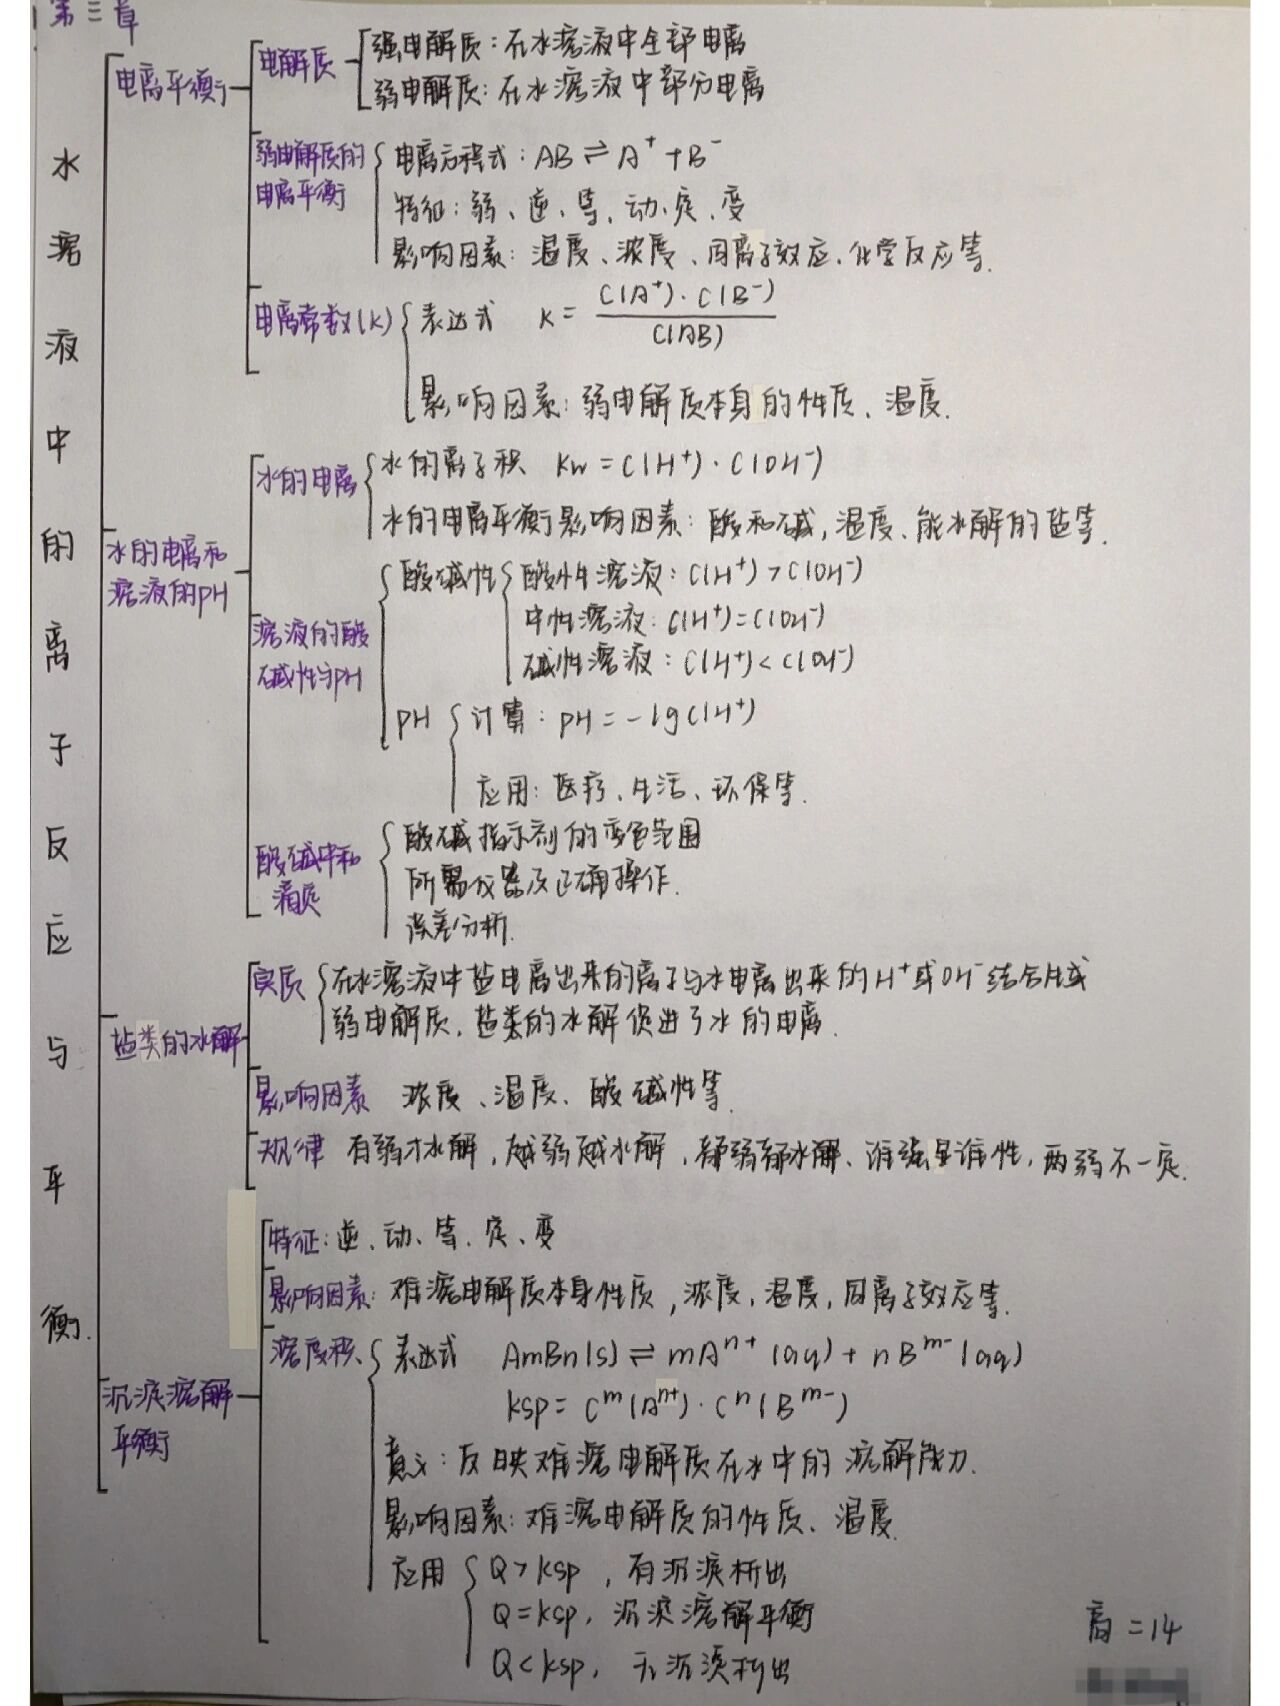 第三章
水溶液中的离子反应与平衡.
电离平衡
电解质
强电解质：在水溶液中全部电离
弱电解质：在水溶液中部分电离
弱电解质的
电离平衡
电离方程式：AB⇌A⁺+B⁻
特征：弱、逆、等、动、定、变
影响因素：温度、浓度、同离子效应、化学反应等.
电离常数(K)
表达式 K = C(A⁺)·C(B⁻)
C(AB)
影响因素：弱电解质本身的性质、温度.
水的电离和
溶液的PH
水的电离
水的离子积 Kw=C(H⁺)·C(OH⁻)
水的电离平衡影响因素：酸和碱，温度、能水解的盐等.
溶液的酸
碱性与PH
酸碱性
酸性溶液：C(H⁺)>C(OH⁻)
中性溶液：C(H⁺)=C(OH⁻)
碱性溶液：C(H⁺)<C(OH⁻)
PH
计算：PH=-lgC(H⁺)
应用：医疗、生活、环保等.
酸碱中和
滴定
酸碱指示剂的变色范围
所需仪器及正确操作.
误差分析.
盐类的水解
实质
在水溶液中盐电离出来的离子与水电离出来的H⁺或OH⁻结合生成
弱电解质，盐类的水解促进了水的电离.
影响因素 浓度、温度、酸碱性等.
规律 有弱才水解，越弱越水解，都弱都水解、谁强显谁性，两弱不一定.
沉淀溶解
平衡
特征：逆、动、等、定、变
影响因素：难溶电解质本身性质，浓度，温度，同离子效应等.
溶度积
表达式 AmBn(s)⇌mAⁿ⁺(aq)+nBᵐ⁻(aq)
Ksp=Cᵐ(Aⁿ⁺)·Cⁿ(Bᵐ⁻)
意义：反映难溶电解质在水中的溶解能力.
影响因素：难溶电解质的性质、温度.
应用
Q>Ksp，有沉淀析出
Q=Ksp，沉淀溶解平衡
Q<Ksp，无沉淀析出
高二14